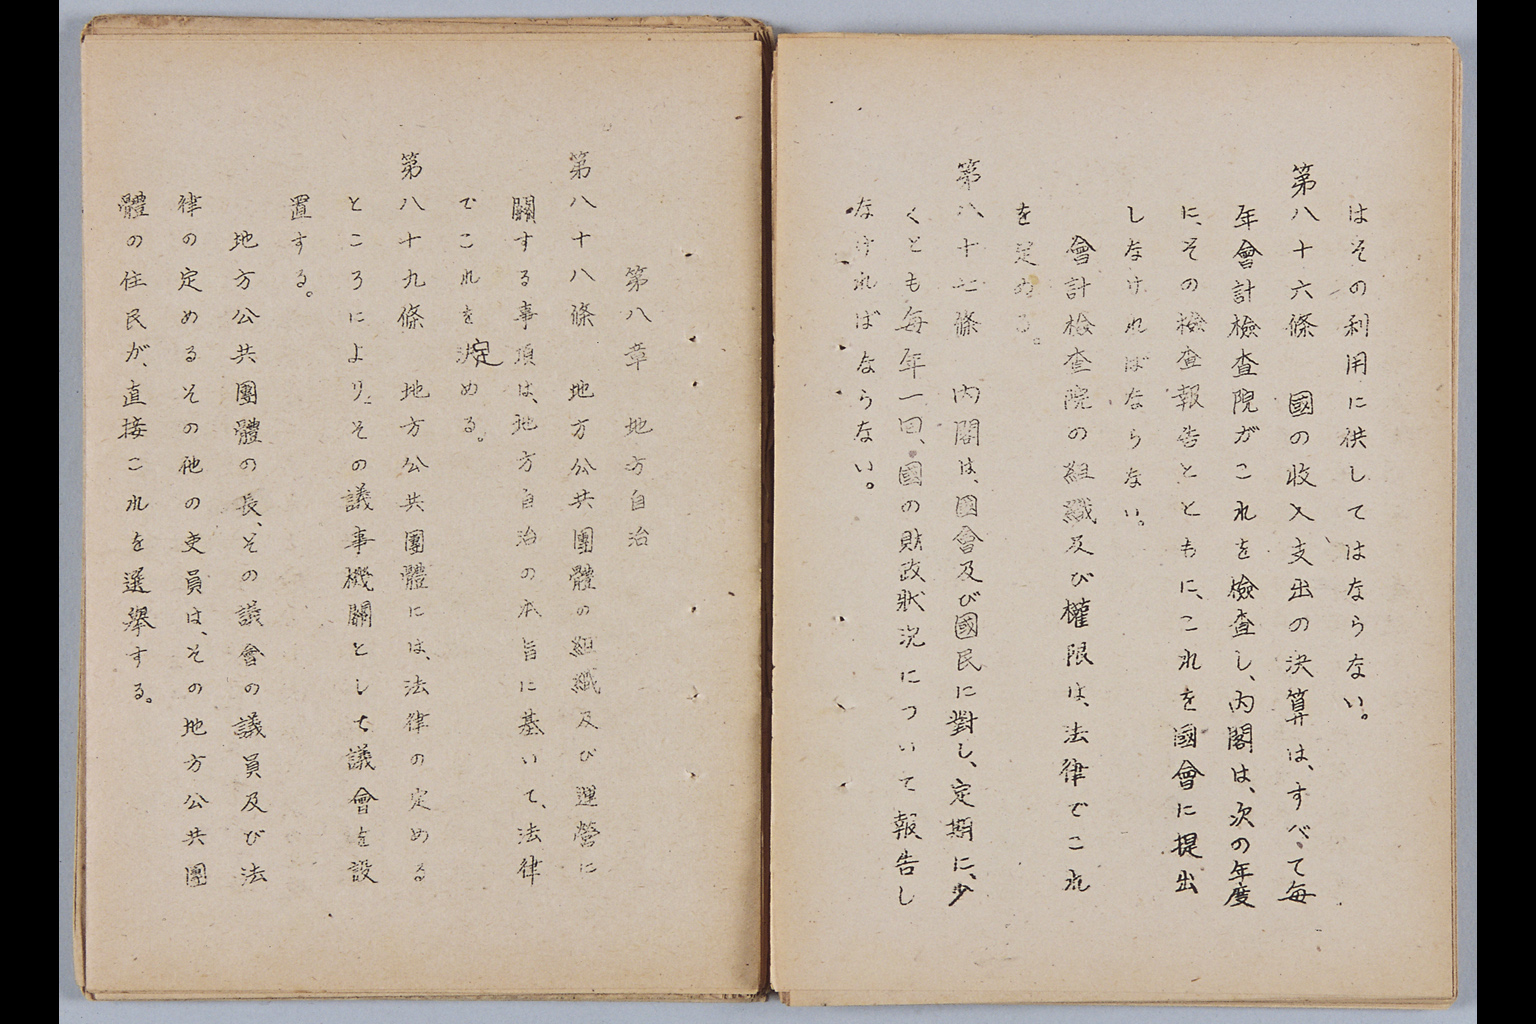 はその利用に供してはならない。
第八十六條　國の收入支出の決算は、すべて每
年會計檢査院がこれを檢査し、内閣は、次の年度
に、その檢査報告とともに、これを國會に提出
しなければならない。
會計檢査院の組織及び權限は、法律でこれ
を定める。
第八十七條　内閣は、國會及び國民に對し、定期に、少
くとも每年一回、國の財政狀況について報告し
なければならない。
第八章　地方自治
第八十八條　地方公共團體の組織及び運營に
關する事項は、地方自治の本旨に基いて、法律
でこれを定める。
第八十九條　地方公共團體には、法律の定める
ところにより、その議事機關として議會を設
置する。
地方公共團體の長、その議會の議員及び法
律の定めるその他の吏員は、その地方公共團
體の住民が、直接これを選擧する。